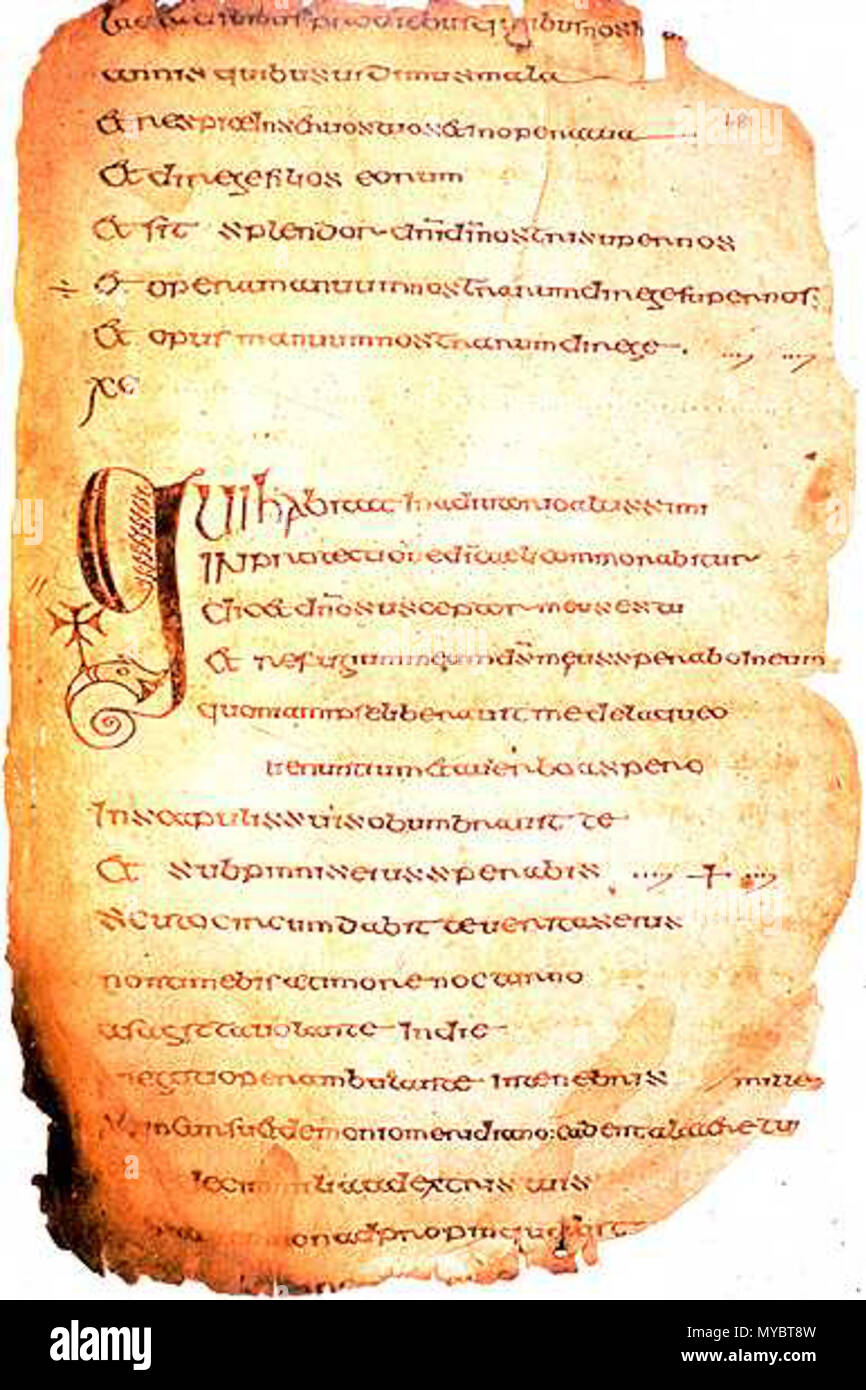 pro diebus quibus nos
annis quibus uidimus mala
et respice in seruos tuos et in opera tua
48
et dirige filios eorum
et sit splendor dñi dī nostri super nos
÷ et opera manuum nostrarum dirige super nos:
et opus manuum nostrarum dirige
xc
Qui habitat in adiutorio altissimi
in protectione dī caeli commorabitur
dicet dño susceptor meus es tu
et refugium meum ds̄ meus sperabo in eum
quoniam ipse liberauit me de laqueo
uenantium et a uerbo aspero
in scapulis suis obumbrauit te
et sub pinnis eius sperabis
scuto circumdabit te ueritas eius
non timebis a timore nocturno
a sagitta uolante in die
negotio perambulante in tenebris / mille
incursu et demonio meridiano: cadent a latere tuo
decim milia a dextris tuis
non adpropinquabit
alamy
Image ID: MYBT8W
www.alamy.com